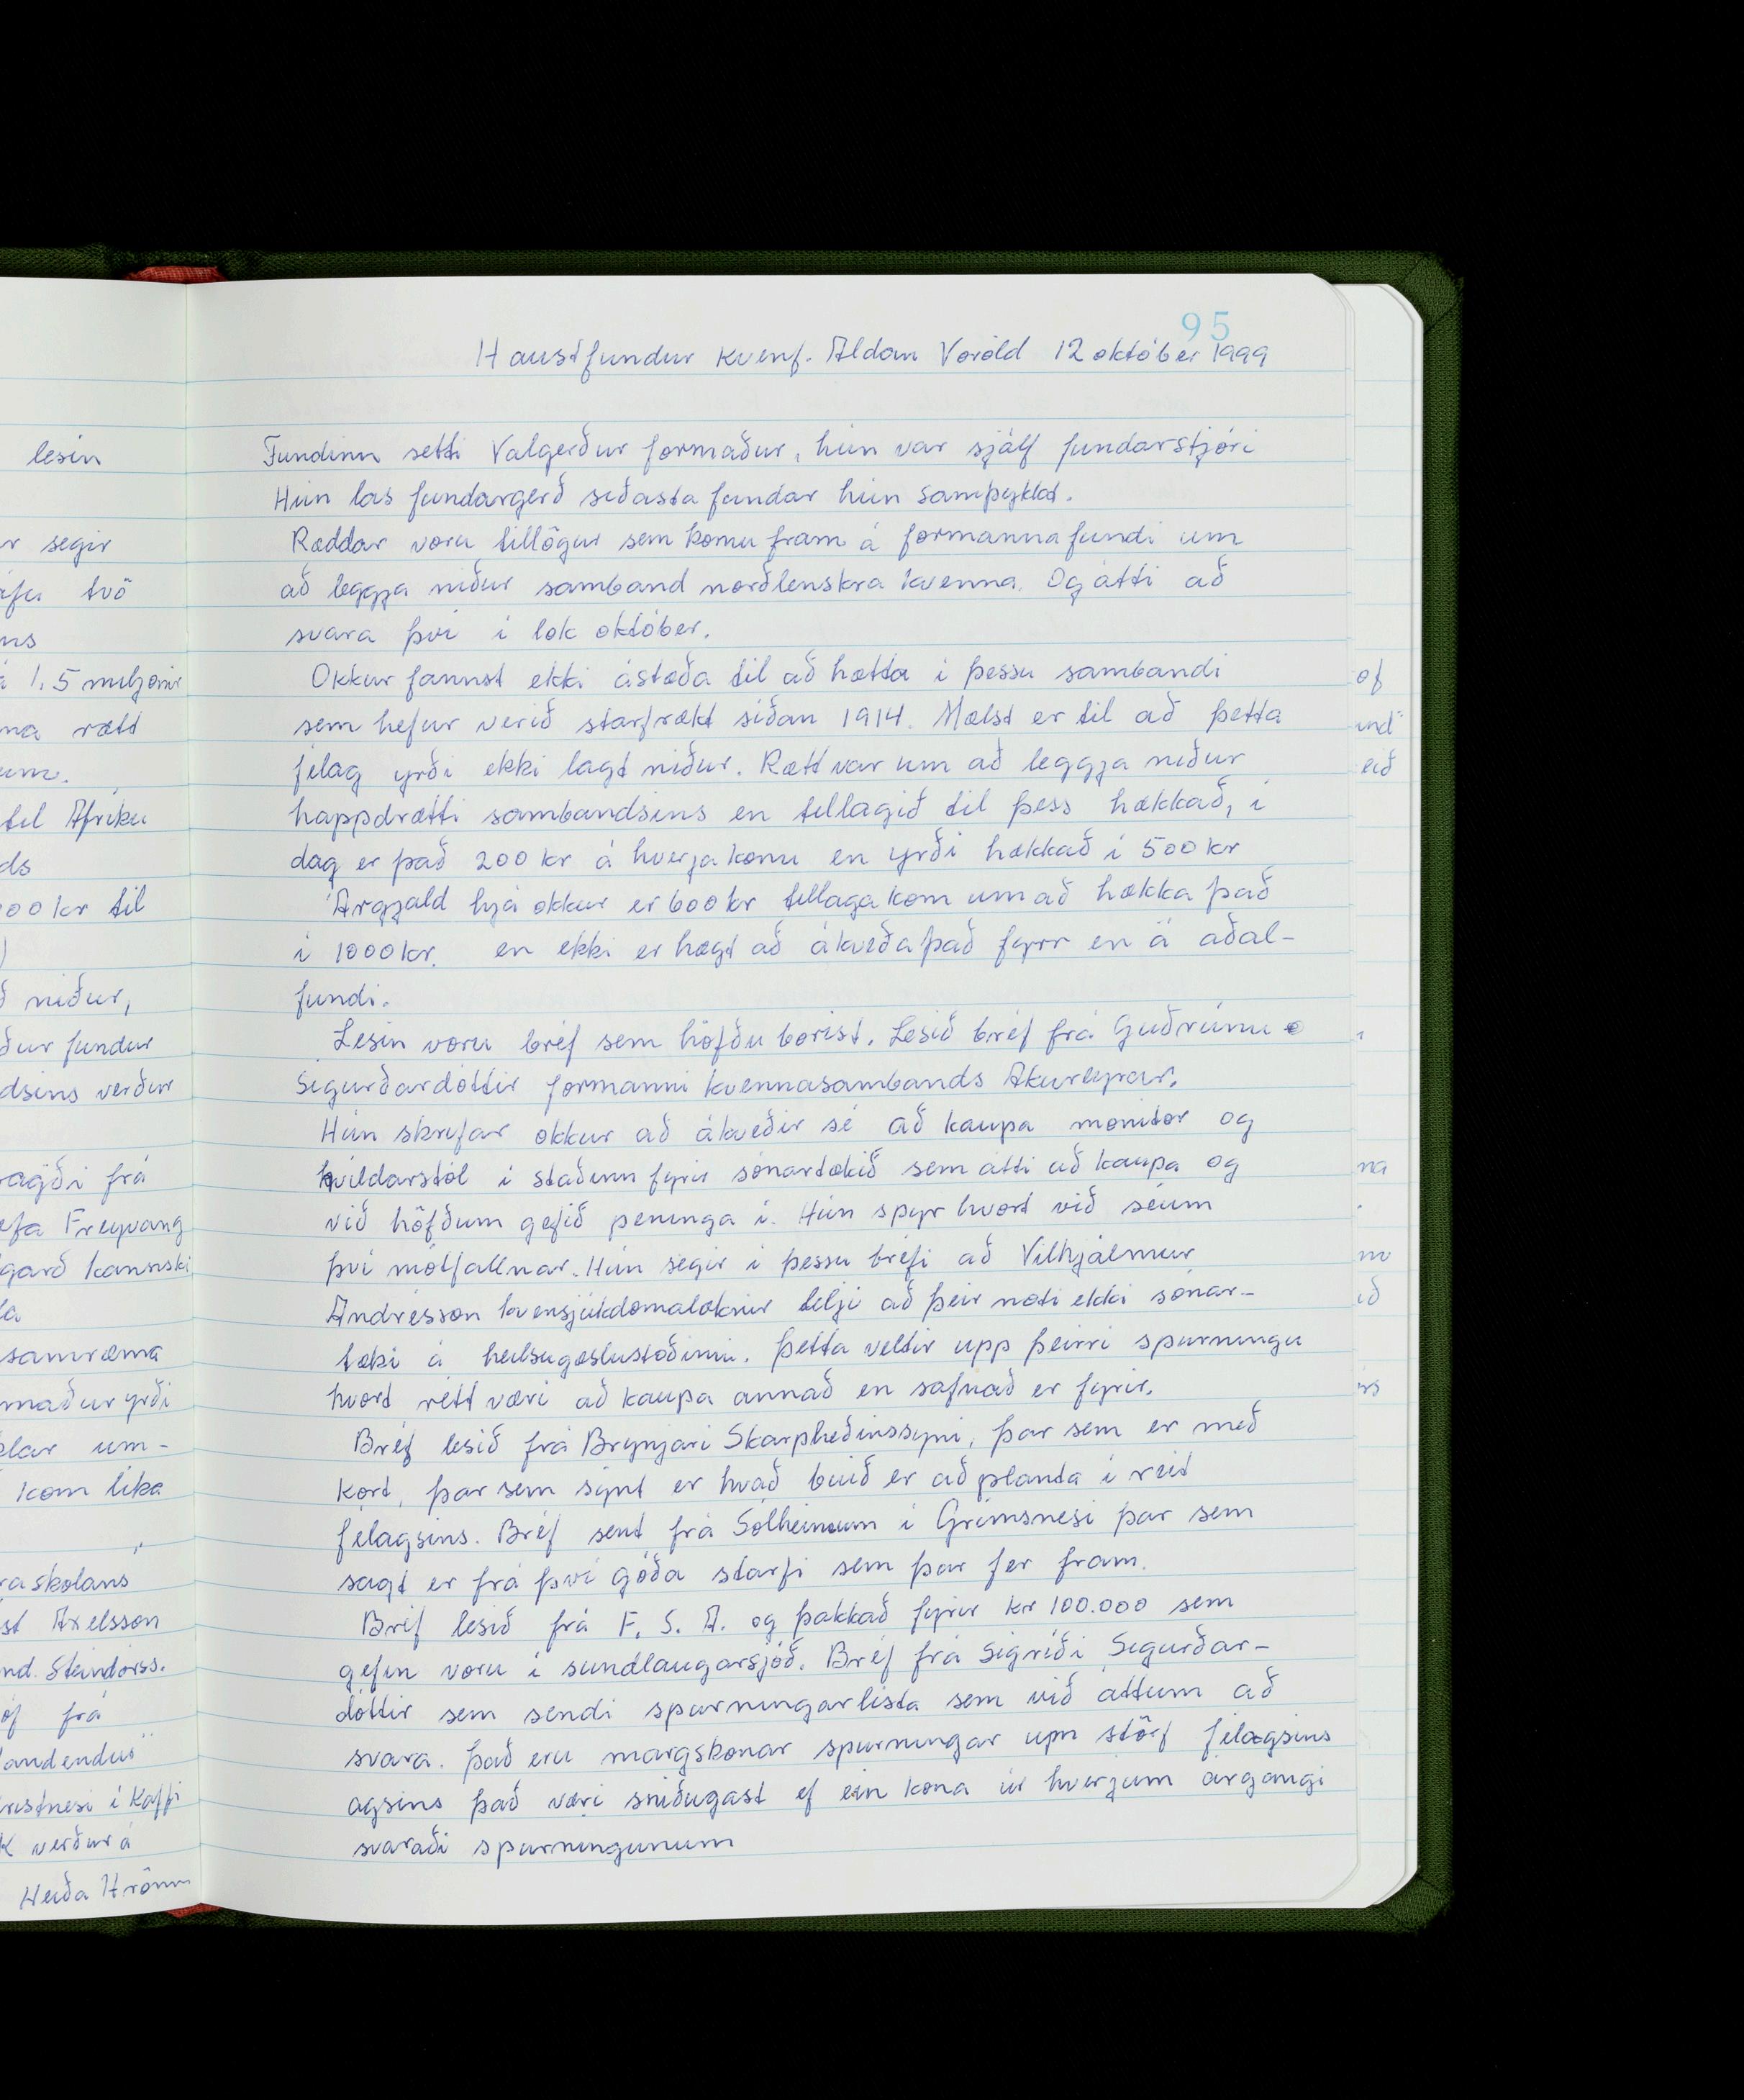 95
Haustfundur kvenf. Aldan Voröld 12 október 1999
Fundinn setti Valgerður formaður, hún var sjálf fundarstjóri
Hún las fundargerð síðasta fundar hún samþykkt.
Ræddar voru tillögur sem komu fram á formannafundi um
að leggja niður samband norðlenskra kvenna. Og átti að
svara því í lok október.
Okkur fannst ekki ástæða til að hætta í þessu sambandi
sem hefur verið starfrækt síðan 1914. Mælst er til að þetta
félag yrði ekki lagt niður. Rætt var um að leggja niður
happdrætti sambandsins en tillagið til þess hækkað, í
dag er það 200 kr á hverja konu en yrði hækkað í 500 kr
Árgjald hjá okkur er 600 kr tillaga kom um að hækka það
í 1000 kr. en ekki er hægt að ákveða það fyrr en á aðal-
fundi.
Lesin voru bréf sem höfðu borist. Lesið bréf frá Guðrúnu
Sigurðardóttir formanni kvennasambands Akureyrar.
Hún skrifar okkur að ákveðir sé að kaupa monitor og
hvíldarstól í staðinn fyrir sónartækið sem átti að kaupa og
við höfðum gefið peninga í. Hún spyr hvort við séum
því mótfallnar. Hún segir í þessu bréfi að Vilhjálmur
Andrésson kvensjúkdómalæknir telji að þeir noti ekki sónar-
tæki á heilsugæslustöðinni. Þetta veltir upp þeirri spurningu
hvort rétt væri að kaupa annað en safnað er fyrir.
Bréf lesið frá Brynjari Skarphéðinssyni, þar sem er með
kort, þar sem sýnt er hvað búið er að planta í reit
félagsins. Bréf sent frá Sólheimum í Grímsnesi þar sem
sagt er frá því góða starfi sem þar fer fram.
Bréf lesið frá F. S. A. og þakkað fyrir kr 100.000 sem
gefin voru í sundlaugarsjóð. Bréf frá Sigríði Sigurðar-
dóttir sem sendi spurningarlista sem við áttum að
svara. Það eru margskonar spurningar um störf félagsins
agsins það væri sniðugast ef ein kona úr hverjum árgangi
svaraði spurningunum
lesin
segir
tvö
1,5 miljónir
rætt
til Afríku
kr til
niður,
fundur
verður
frá
Freyvang
kannski
samræma
yrði
um-
kom líka
Axelsson
Steindórss.
frá
í Kaffi
verður á
Heiða Hrönn